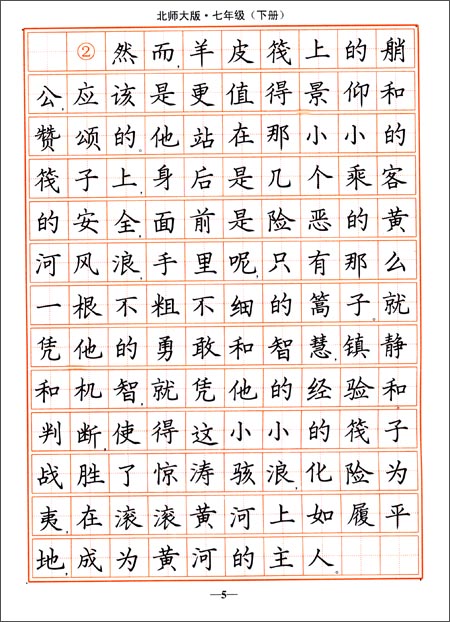 北师大版·七年级（下册）
②然而,羊皮筏上的艄
公,应该是更值得景仰和
赞颂的。他站在那小小的
筏子上,身后是几个乘客
的安全,面前是险恶的黄
河风浪,手里呢,只有那么
一根不粗不细的篙子。就
凭他的勇敢和智慧,镇静
和机智,就凭他的经验和
判断,使得这小小的筏子
战胜了惊涛骇浪,化险为
夷,在滚滚黄河上如履平
地,成为黄河的主人。
—5—